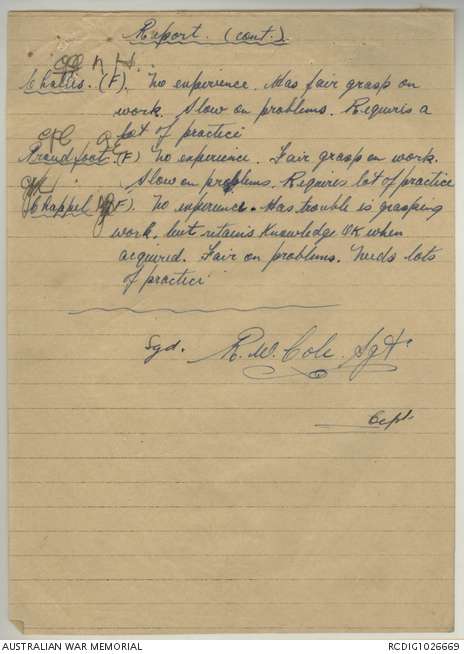 Report. (cont.)
Challis. (F). No experience. Has fair grasp on
work. Slow on problems. Requires a
lot of practice
Proudfoot (F) No experience. Fair grasp on work.
Slow on problems. Requires lot of practice
Chappel (F). No experience. Has trouble is grasping
work, but retains Knowledge OK when
acquired. Fair on problems. Needs lots
of practice
Sgd. R. W. Cole. Sgt
AUSTRALIAN WAR MEMORIAL
RCDIG1026669